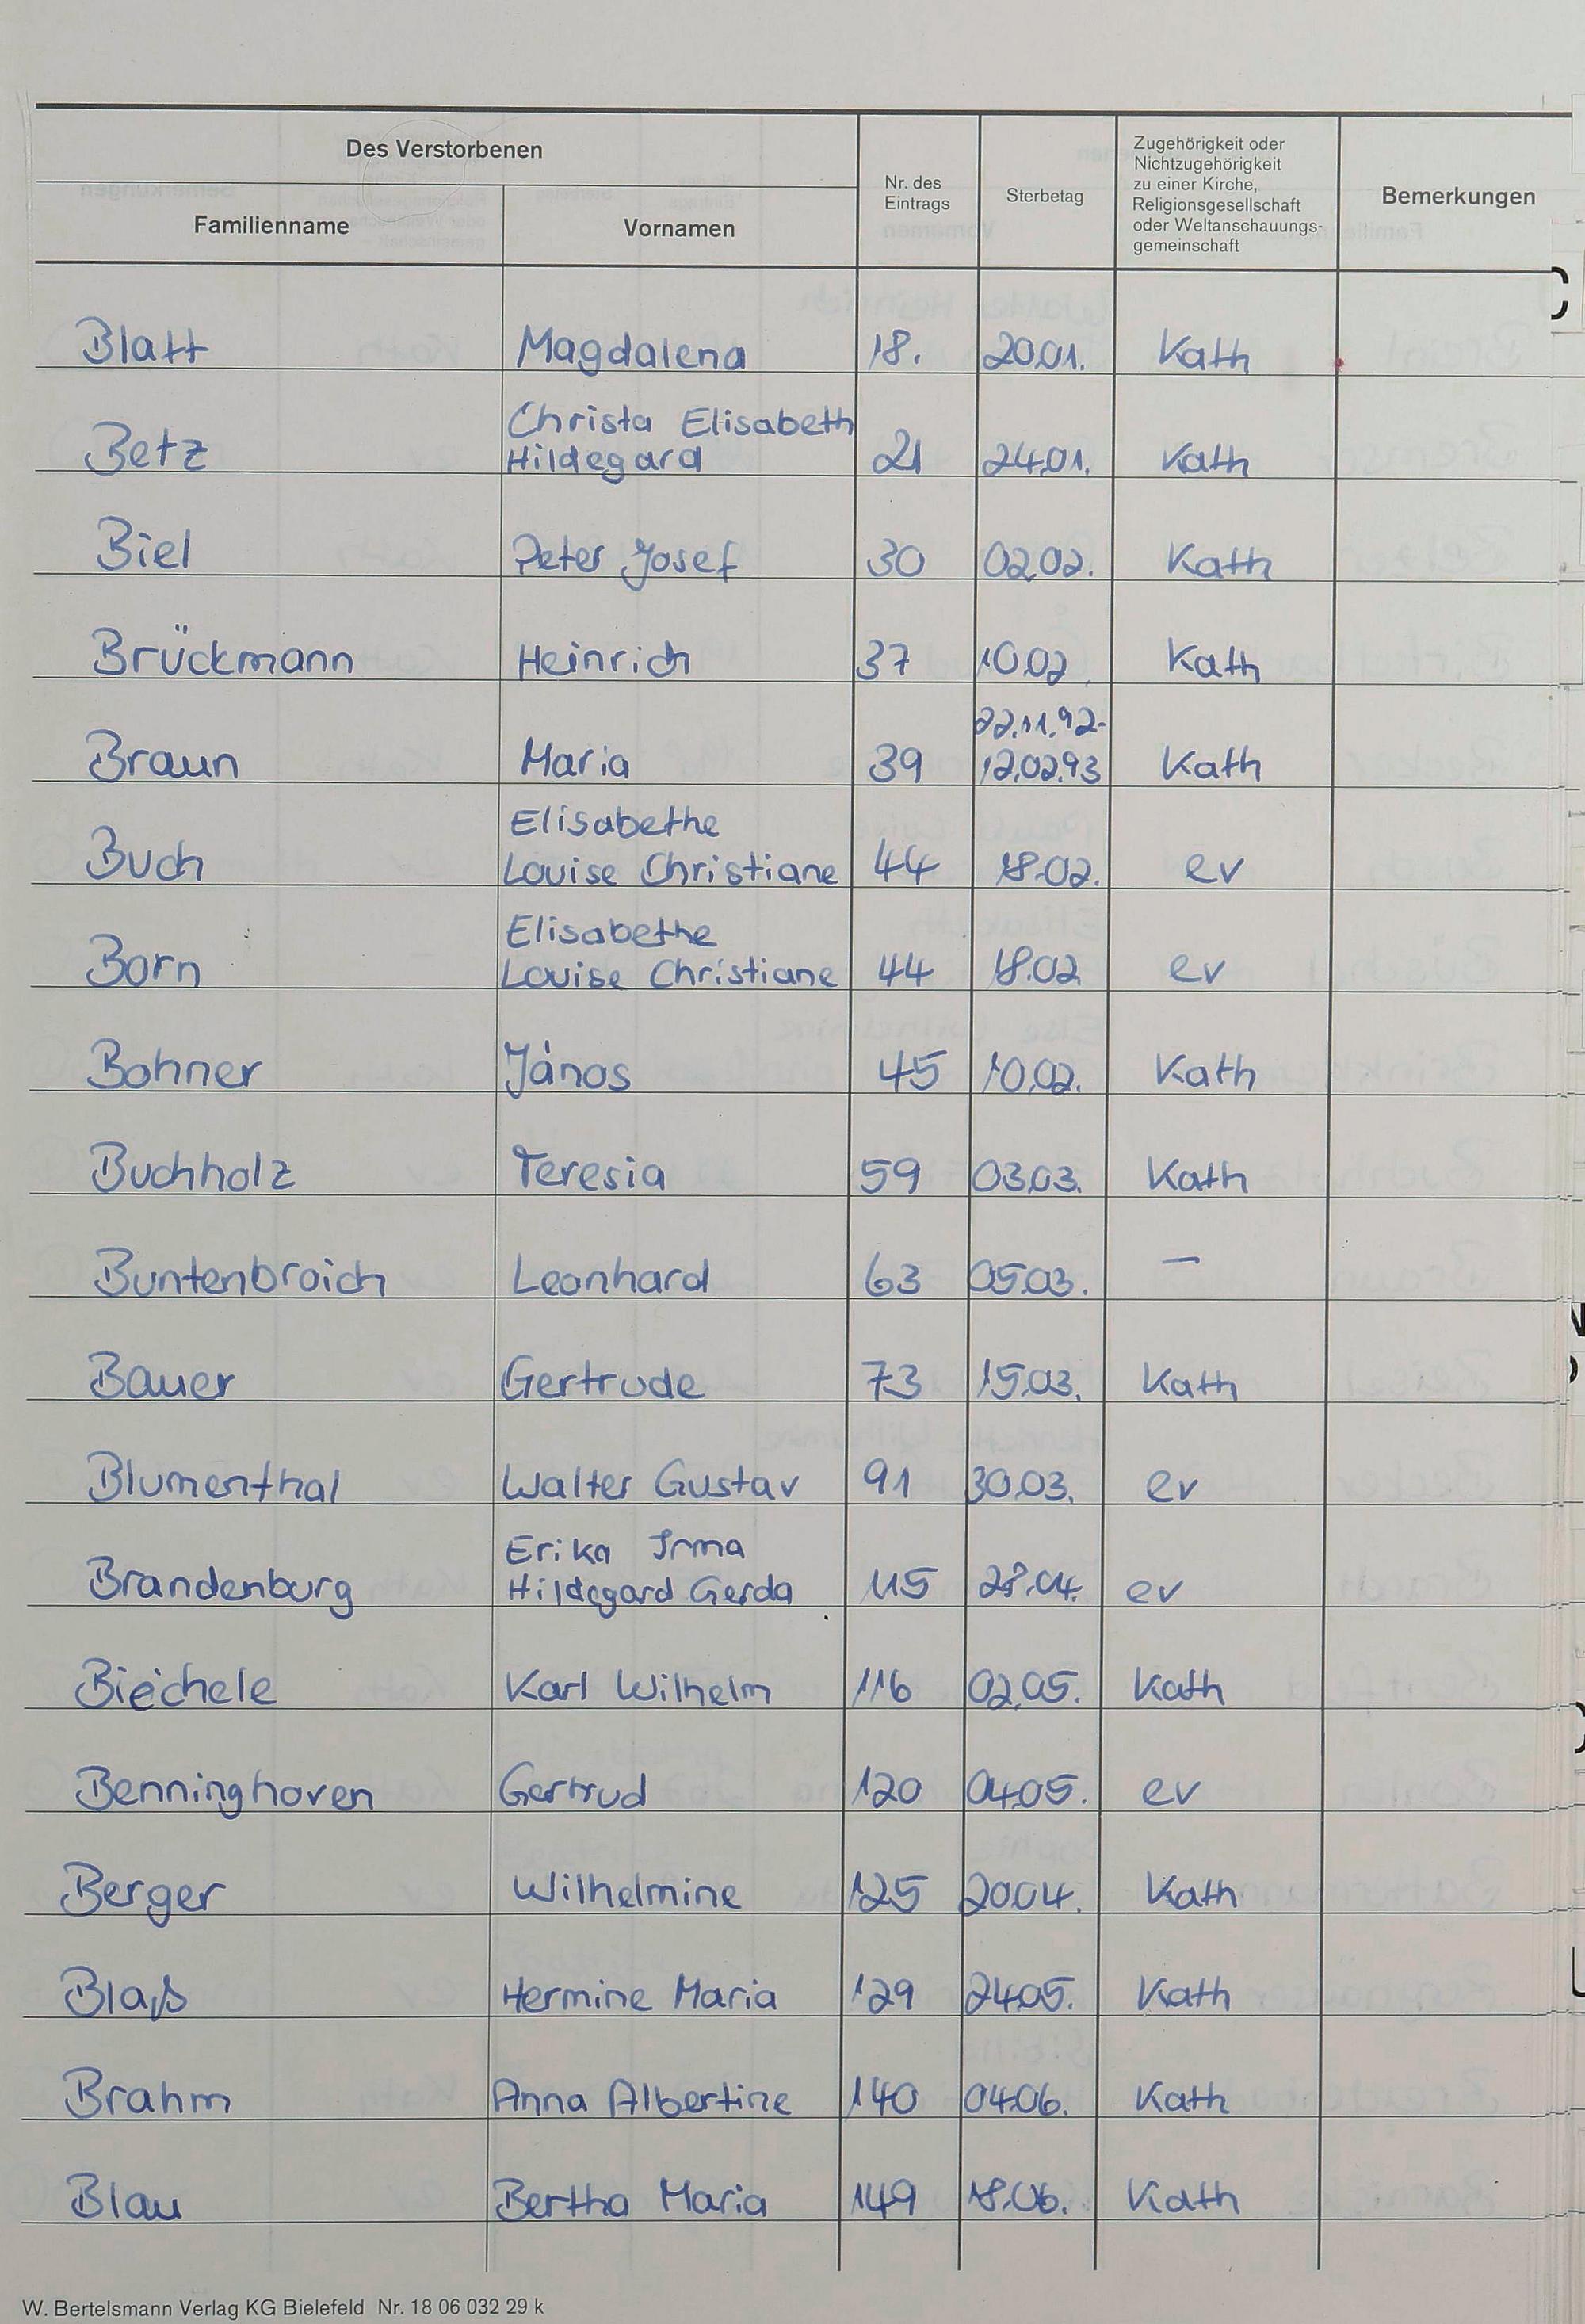 Des Verstorbenen
Familienname Vornamen Nr. des Eintrags Sterbetag Zugehörigkeit oder Nichtzugehörigkeit zu einer Kirche, Religionsgesellschaft oder Weltanschauungs- gemeinschaft Bemerkungen
Blatt Magdalena 18. 20.01. Kath
Christa Elisabeth
Betz Hildegard 21 24.01. Kath
Biel Peter Josef 30 02.02. Kath
Brückmann Heinrich 37 10.02. Kath
22.11.92-
Braun Maria 39 12.02.93 Kath
Elisabethe
Buch Louise Christiane 44 18.02. ev
Elisabethe
Born Louise Christiane 44 18.02 ev
Bohner János 45 10.02. Kath
Buchholz Teresia 59 03.03. Kath
Buntenbroich Leonhard 63 05.03. —
Bauer Gertrude 73 15.03. Kath
Blumenthal Walter Gustav 91 30.03. ev
Erika Irma
Brandenburg Hildegard Gerda 115 28.04. ev
Biechele Karl Wilhelm 116 02.05. Kath
Benninghoven Gertrud 120 04.05. ev
Berger Wilhelmine 125 20.04. Kath
Blaß Hermine Maria 129 24.05. Kath
Brahm Anna Albertine 140 04.06. Kath
Blau Bertha Maria 149 18.06. Kath
W. Bertelsmann Verlag KG Bielefeld Nr. 18 06 032 29 k